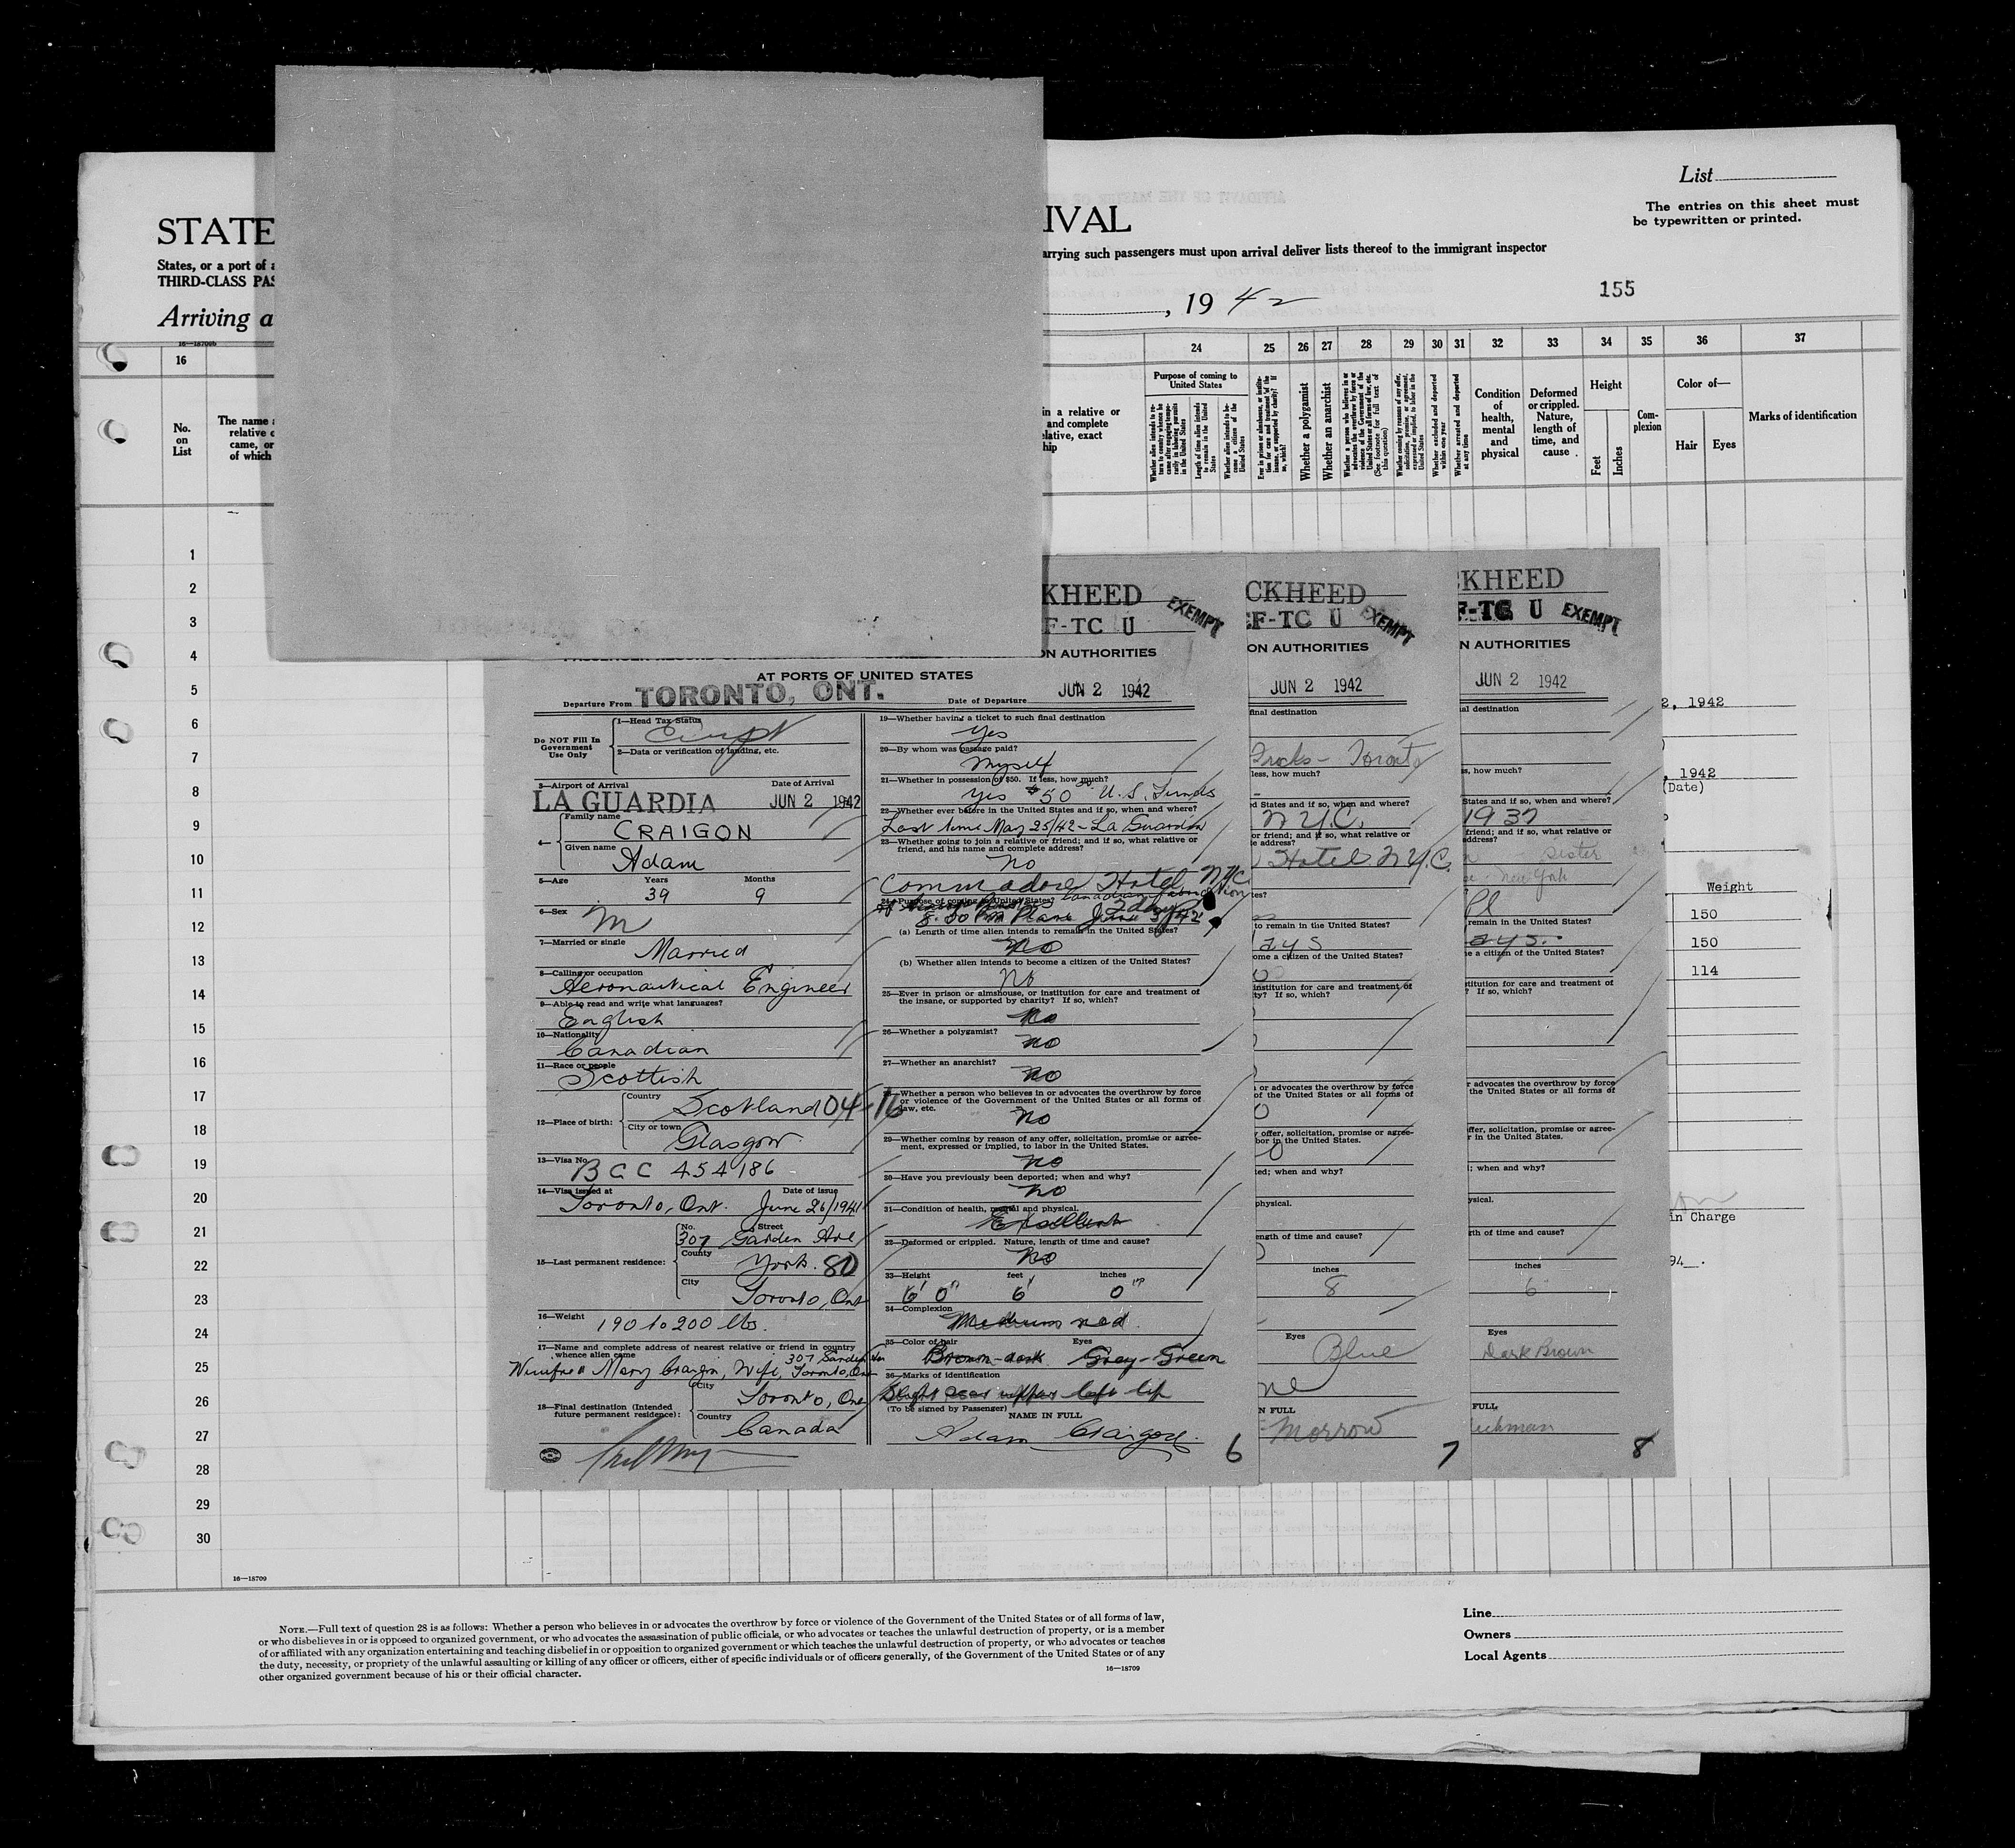 List
The entries on this sheet must
be typewritten or printed.
STATE
IVAL
States, or a port of a
arrying such passengers must upon arrival deliver lists thereof to the immigrant inspector
THIRD-CLASS PAS
Arriving a
, 19 42
155
16—18709b
16
24 25 26 27 28 29 30 31 32 33 34 35 36 37
No.
on
List
The name a
relative o
came, or
of which
in a relative or
and complete
elative, exact
hip
Purpose of coming to
United States
Whether a polygamist
Whether an anarchist
Condition
of
health,
mental
and
physical
Deformed
or crippled.
Nature,
length of
time, and
cause
Height
Feet
Inches
Com-
plexion
Color of—
Hair
Eyes
Marks of identification
1
2
3
4
5
6
7
8
9
10
11
12
13
14
15
16
17
18
19
20
21
22
23
24
25
26
27
28
29
30
KHEED
F-TC U EXEMPT
ON AUTHORITIES
AT PORTS OF UNITED STATES
Departure From TORONTO, ONT.
Date of Departure JUN 2 1942
Do NOT Fill In
Government
Use Only
1—Head Tax Status
2—Data or verification of landing, etc.
3—Airport of Arrival Date of Arrival
LA GUARDIA JUN 2 1942
4— Family name
CRAIGON
Given name
Adam
5—Age Years Months
39 9
6—Sex
M
7—Married or single
Married
8—Calling or occupation
Aeronautical Engineer
9—Able to read and write what languages?
English
10—Nationality
Canadian
11—Race or people
Scottish
12—Place of birth: Country
Scotland 04-16
City or town
Glasgow.
13—Visa No.
BCC 454186
14—Visa issued at Date of issue
Toronto, Ont. June 26/1941
15—Last permanent residence: No. Street
307 Garden Ave
County
York. 80
City
Toronto, Ont
16—Weight
190 to 200 lbs.
17—Name and complete address of nearest relative or friend in country
whence alien came
Mary Craigon, Wife, 307 Garden Toronto, Ont
18—Final destination (Intended
future permanent residence):
City
Toronto, Ont
Country
Canada
19—Whether having a ticket to such final destination
Yes
20—By whom was passage paid?
Myself
21—Whether in possession of $50. If less, how much?
Yes $50 U.S. Funds
22—Whether ever before in the United States and if so, when and where?
Last time May 25/42 - La Guardia
23—Whether going to join a relative or friend; and if so, what relative or
friend, and his name and complete address?
No
Commodore Hotel NYC
24—Purpose of coming to United States?
8.30 PM Plane June 3/42
(a) Length of time alien intends to remain in the United States?
No
(b) Whether alien intends to become a citizen of the United States?
No
25—Ever in prison or almshouse, or institution for care and treatment of
the insane, or supported by charity? If so, which?
No
26—Whether a polygamist?
No
27—Whether an anarchist?
No
28—Whether a person who believes in or advocates the overthrow by force
or violence of the Government of the United States or all forms of
law, etc.
No
29—Whether coming by reason of any offer, solicitation, promise or agree-
ment, expressed or implied, to labor in the United States.
No
30—Have you previously been deported; when and why?
No
31—Condition of health, mental and physical.
Excellent
32—Deformed or crippled. Nature, length of time and cause?
No
33—Height feet inches
6' 0" 6' 0"
34—Complexion
Medium red.
35—Color of hair Eyes
Brown-dark Grey-Green
36—Marks of identification
Slight scar upper left lip
(To be signed by Passenger)
NAME IN FULL
Adam Craigon.
6
CKHEED
EF-TC U EXEMPT
ON AUTHORITIES
JUN 2 1942
final destination
Toronto
less, how much?
d States and if so, when and where?
N.Y.C.
or friend; and if so, what relative or
e address?
Hotel N.Y.C.
es?
to remain in the United States?
ays
ome a citizen of the United States?
institution for care and treatment of
ty? If so, which?
or advocates the overthrow by force
of the United States or all forms of
offer, solicitation, promise or agree-
bor in the United States.
ted; when and why?
physical.
ength of time and cause?
inches
8
Eyes
Blue
N FULL
Morrow
7
KHEED
F-TC U EXEMPT
N AUTHORITIES
JUN 2 1942
al destination
s, how much?
States and if so, when and where?
1937
friend; and if so, what relative or
address?
Sister
New York
Pl
remain in the United States?
ays.
e a citizen of the United States?
stitution for care and treatment of
? If so, which?
r advocates the overthrow by force
the United States or all forms of
ffer, solicitation, promise or agree-
r in the United States.
; when and why?
ysical.
th of time and cause?
inches
6
Eyes
Dark Brown
FULL
8
2, 1942
, 1942
(Date)
Weight
150
150
114
in Charge
94__.
16—18709
NOTE.—Full text of question 28 is as follows: Whether a person who believes in or advocates the overthrow by force or violence of the Government of the United States or of all forms of law,
or who disbelieves in or is opposed to organized government, or who advocates the assassination of public officials, or who advocates or teaches the unlawful destruction of property, or is a member
of or affiliated with any organization entertaining and teaching disbelief in or opposition to organized government or which teaches the unlawful destruction of property, or who advocates or teaches
the duty, necessity, or propriety of the unlawful assaulting or killing of any officer or officers, either of specific individuals or of officers generally, of the Government of the United States or of any
other organized government because of his or their official character.
16—18709
Line
Owners
Local Agents